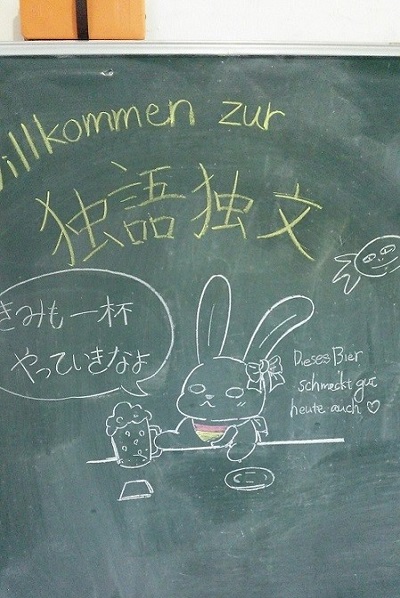 Willkommen zur
独語独文
きみも一杯
やっていきなよ
Dieses Bier
schmeckt gut
heute auch ♡